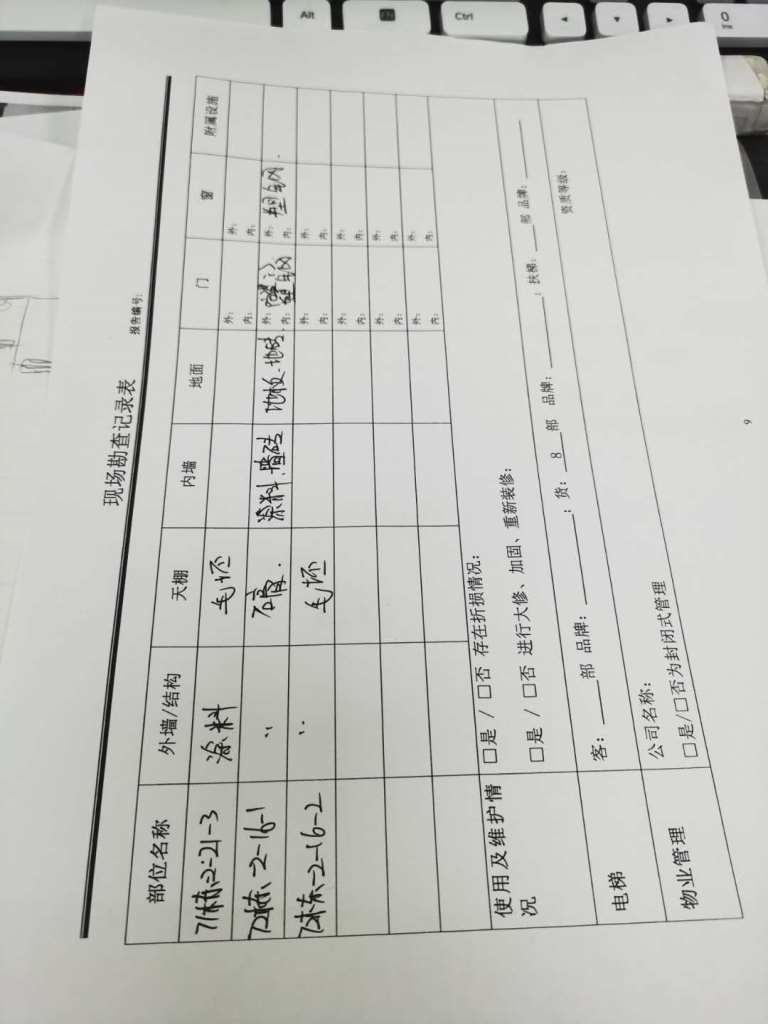 现场勘查记录表
报告编号:
部位名称 外墙/结构 天棚 内墙 地面 门 窗 附属设施
71栋-2-21-3 涂料 毛坯 外: 内: 外: 内:
72栋-2-16-1 〃 石膏. 涂料.墙砖 地板.地砖. 外: 内: 塑钢 外: 内: 塑钢.
72栋-2-16-2 〃 毛坯 外: 内: 外: 内:
外: 内: 外: 内:
外: 内: 外: 内:
外: 内: 外: 内:
使用及维护情况
□是 / □否 存在折损情况:
□是 / □否 进行大修、加固、重新装修:
电梯 客: ____部 品牌: ________; 货: 8 部 品牌: ________; 扶梯: ____部 品牌: ____
物业管理
公司名称: 资质等级:
□是/□否为封闭式管理
9
Alt
Ctrl
0
Ins